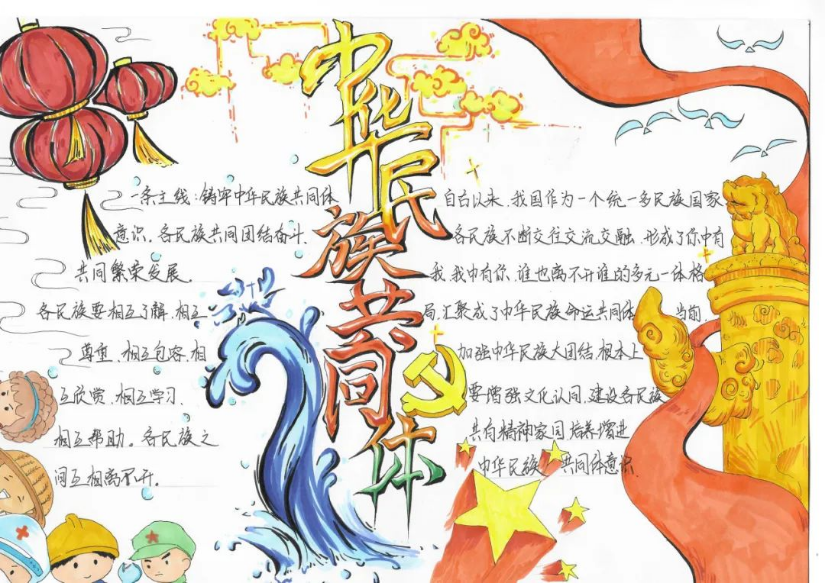 中华民族共同体
一条主线：铸牢中华民族共同体
意识。各民族共同团结奋斗、
共同繁荣发展。
各民族要相互了解、相互
尊重、相互包容、相
互欣赏、相互学习、
相互帮助。各民族之
间互相离不开。
自古以来，我国作为一个统一多民族国家
各民族不断交往交流交融，形成了你中有
我，我中有你，谁也离不开谁的多元一体格
局，汇聚成了中华民族命运共同体。当前
加强中华民族大团结，根本上
要增强文化认同，建设各民族
共有精神家园，培养增进
中华民族共同体意识